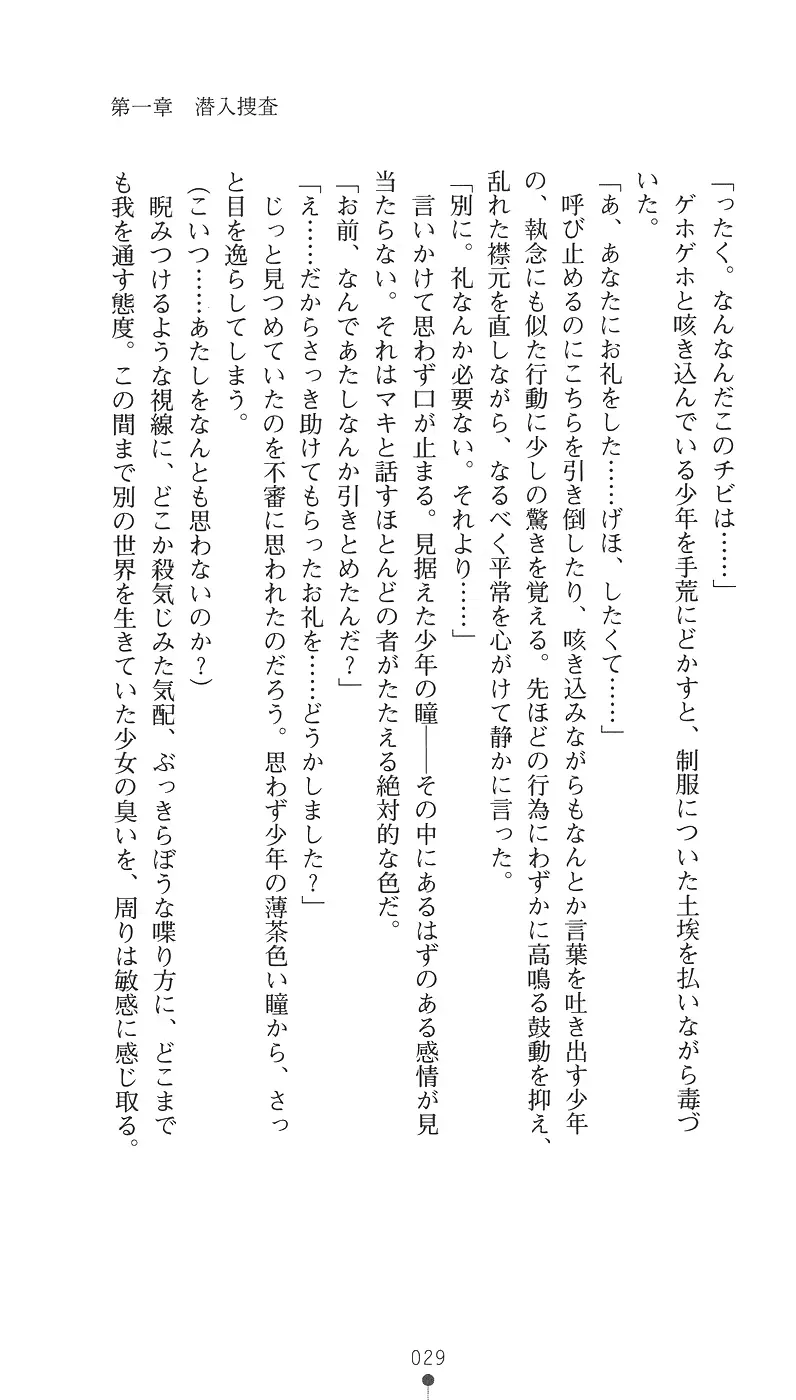 第一章　潜入捜査
「ったく。なんなんだこのチビは……」
　ゲホゲホと咳き込んでいる少年を手荒にどかすと、制服についた土埃を払いながら毒づ
いた。
「あ、あなたにお礼をした……げほ、したくて……」
　呼び止めるのにこちらを引き倒したり、咳き込みながらもなんとか言葉を吐き出す少年
の、執念にも似た行動に少しの驚きを覚える。先ほどの行為にわずかに高鳴る鼓動を抑え、
乱れた襟元を直しながら、なるべく平常を心がけて静かに言った。
「別に。礼なんか必要ない。それより……」
　言いかけて思わず口が止まる。見据えた少年の瞳――その中にあるはずのある感情が見
当たらない。それはマキと話すほとんどの者がたたえる絶対的な色だ。
「お前、なんであたしなんか引きとめたんだ？」
「え……だからさっき助けてもらったお礼を……どうかしました？」
　じっと見つめていたのを不審に思われたのだろう。思わず少年の薄茶色い瞳から、さっ
と目を逸らしてしまう。
（こいつ……あたしをなんとも思わないのか？）
　睨みつけるような視線に、どこか殺気じみた気配、ぶっきらぼうな喋り方に、どこまで
も我を通す態度。この間まで別の世界を生きていた少女の臭いを、周りは敏感に感じ取る。
029